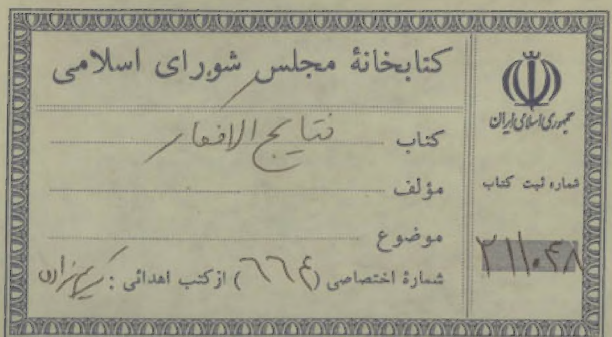 کتابخانهٔ مجلس شورای اسلامی
کتاب نتایج الافکار
مؤلف
موضوع
شمارهٔ اختصاصی (۶۶۴) از کتب اهدائی :
جمهوری اسلامی ایران
شماره ثبت کتاب
۲۱۱۰۴۸